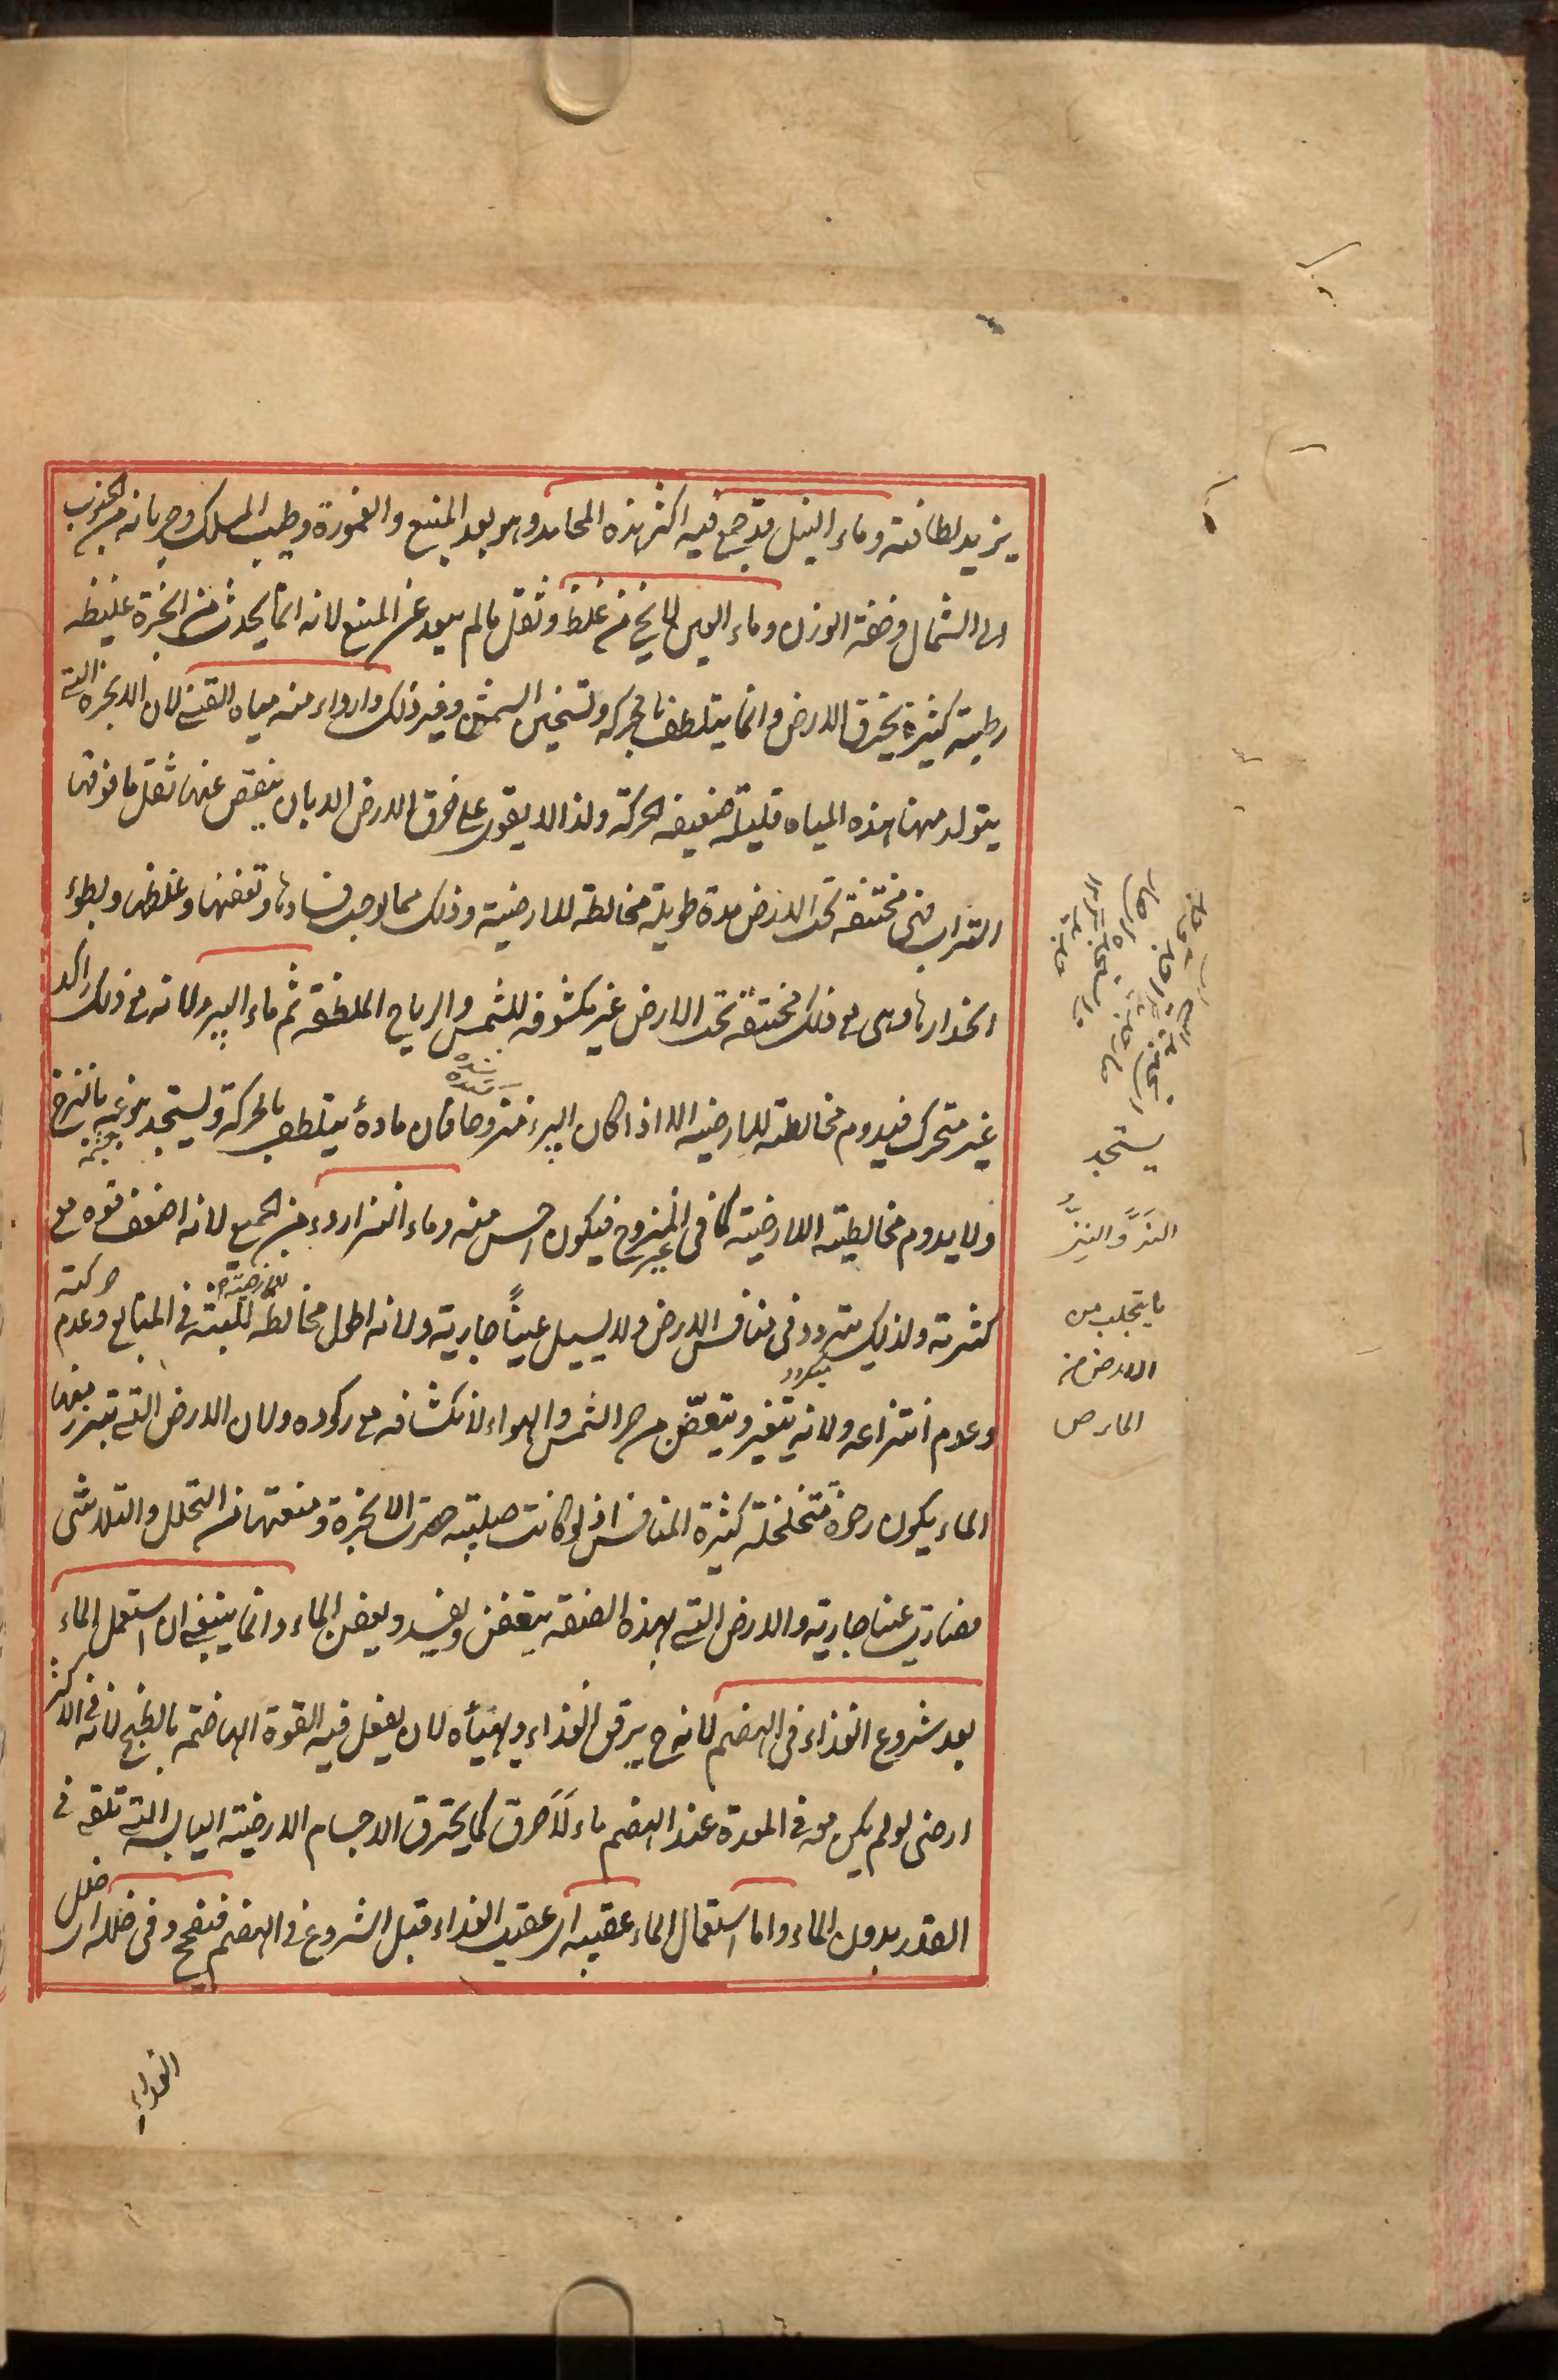 يزيد لطافته وماء النيل قد جمع فيه اكثر هذه المحامد وهو بعد المنبع والغمورة وطيب المسلك وجريانه من الجنوب
الى الشمال وخفة الوزن وماء العين لا يخ من غلظ وثقل ما لم يبعد عن المنبع لانه انما يحدث من ابخرة غليظه
رطبة كثيرة يخرق الارض وانما يتلطف بالحركه وتسخين الشمس وغير ذلك واردا منه مياه القنى لان الابخرة التى
يتولد منها هذه المياه قليلة ضعيفه الحركة ولذا لا يقوى على خرق الارض الا بان ينقص عنها ثقل ما فوقها
التراب فهى مختنقه تحت الارض مدة طويلة مخالطة للارضية وذلك مما يوجب فسادها وتعفنها وغلظها وبطؤ
انحدارها وهى مع ذلك مختنقة تحت الارض غير مكشوفه للشمس والرياح الملطفة ثم ماء البير ولانه مع ذلك راكد
غير متحرك فيدوم مخالطته للارضيه الا اذا كان البير منزوحا فان ماده يتلطف بالحركة ويستجد نوعه بالنزح
ولا يدوم مخالطته الارضية كما فى غير المنزوح فيكون احسن منه وماء النز اردء من الجميع لانه اضعف قوه مع
كثرته ولذلك يتردد فى منافس الارض ولا يسيل عيناً جارية ولانه اطول مخالطه للارضية فى المنابع وعدم حركته
وعدم انتزاعه ولانه يتغير ويتعفن من حر الشمس والهواء لانكشافه مع ركوده ولان الارض التى تبرز منها
الماء يكون رخوة متخلخلة كثيرة المنافس اذ لو كانت صلبة حصرت الابخرة ومنعتها من التحلل والتلاشى
فصارت عينا جارية والارض التى بهذه الصفة يتعفن ويفسد ويعفن الماء وانما ينبغى ان استعمل الماء
بعد شروع الغذاء فى الهضم لانه ح يرقق الغذاء ويهيأه لان يفعل فيه القوة الهاضمة بالطبخ لانه فى الاكثر
ارضى لو لم يكن معه فى المعدة عند الهضم ماء لاَحترق كما يحترق الاجسام الارضية اليابسة التى تلقى فى
القدر بدون الماء واما استعمال الماء عقيبه اى عقيب الغذاء قبل الشروع فى الهضم فيفجج وفى خلله اى خلل
الغذاء
يستجد
النَزُّ والنِزُّ
ما يتحلب من
الارض من
الماء ص